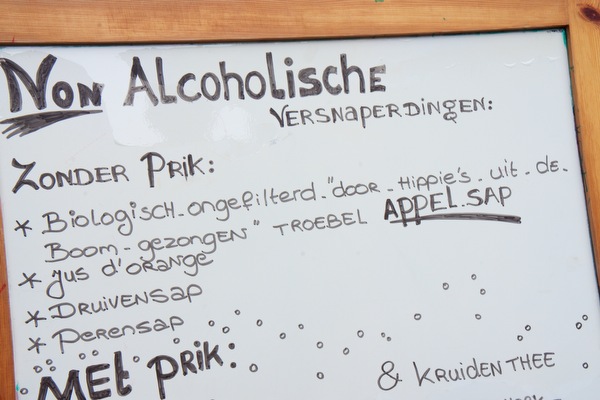 Non Alcoholische
Versnaperdingen:
Zonder Prik:
* Biologisch-ongefilterd-"door-Hippie's-uit-de-
Boom-gezongen" troebel APPEL.SAP
* jus d'orange
* Druivensap
* Perensap
Met Prik:
& Kruiden Thee